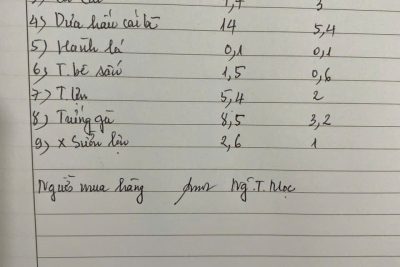 4) Dưa hấu cải bã 14 5,4
5) Hành lá 0,1 0,1
6) T. bê sấn 1,5 0,6
7) T. lợn 5,4 2
8) Trứng gà 8,5 3,2
9) x Sườn lợn 2,6 1
Người mua hàng Ng~ T. Mọc